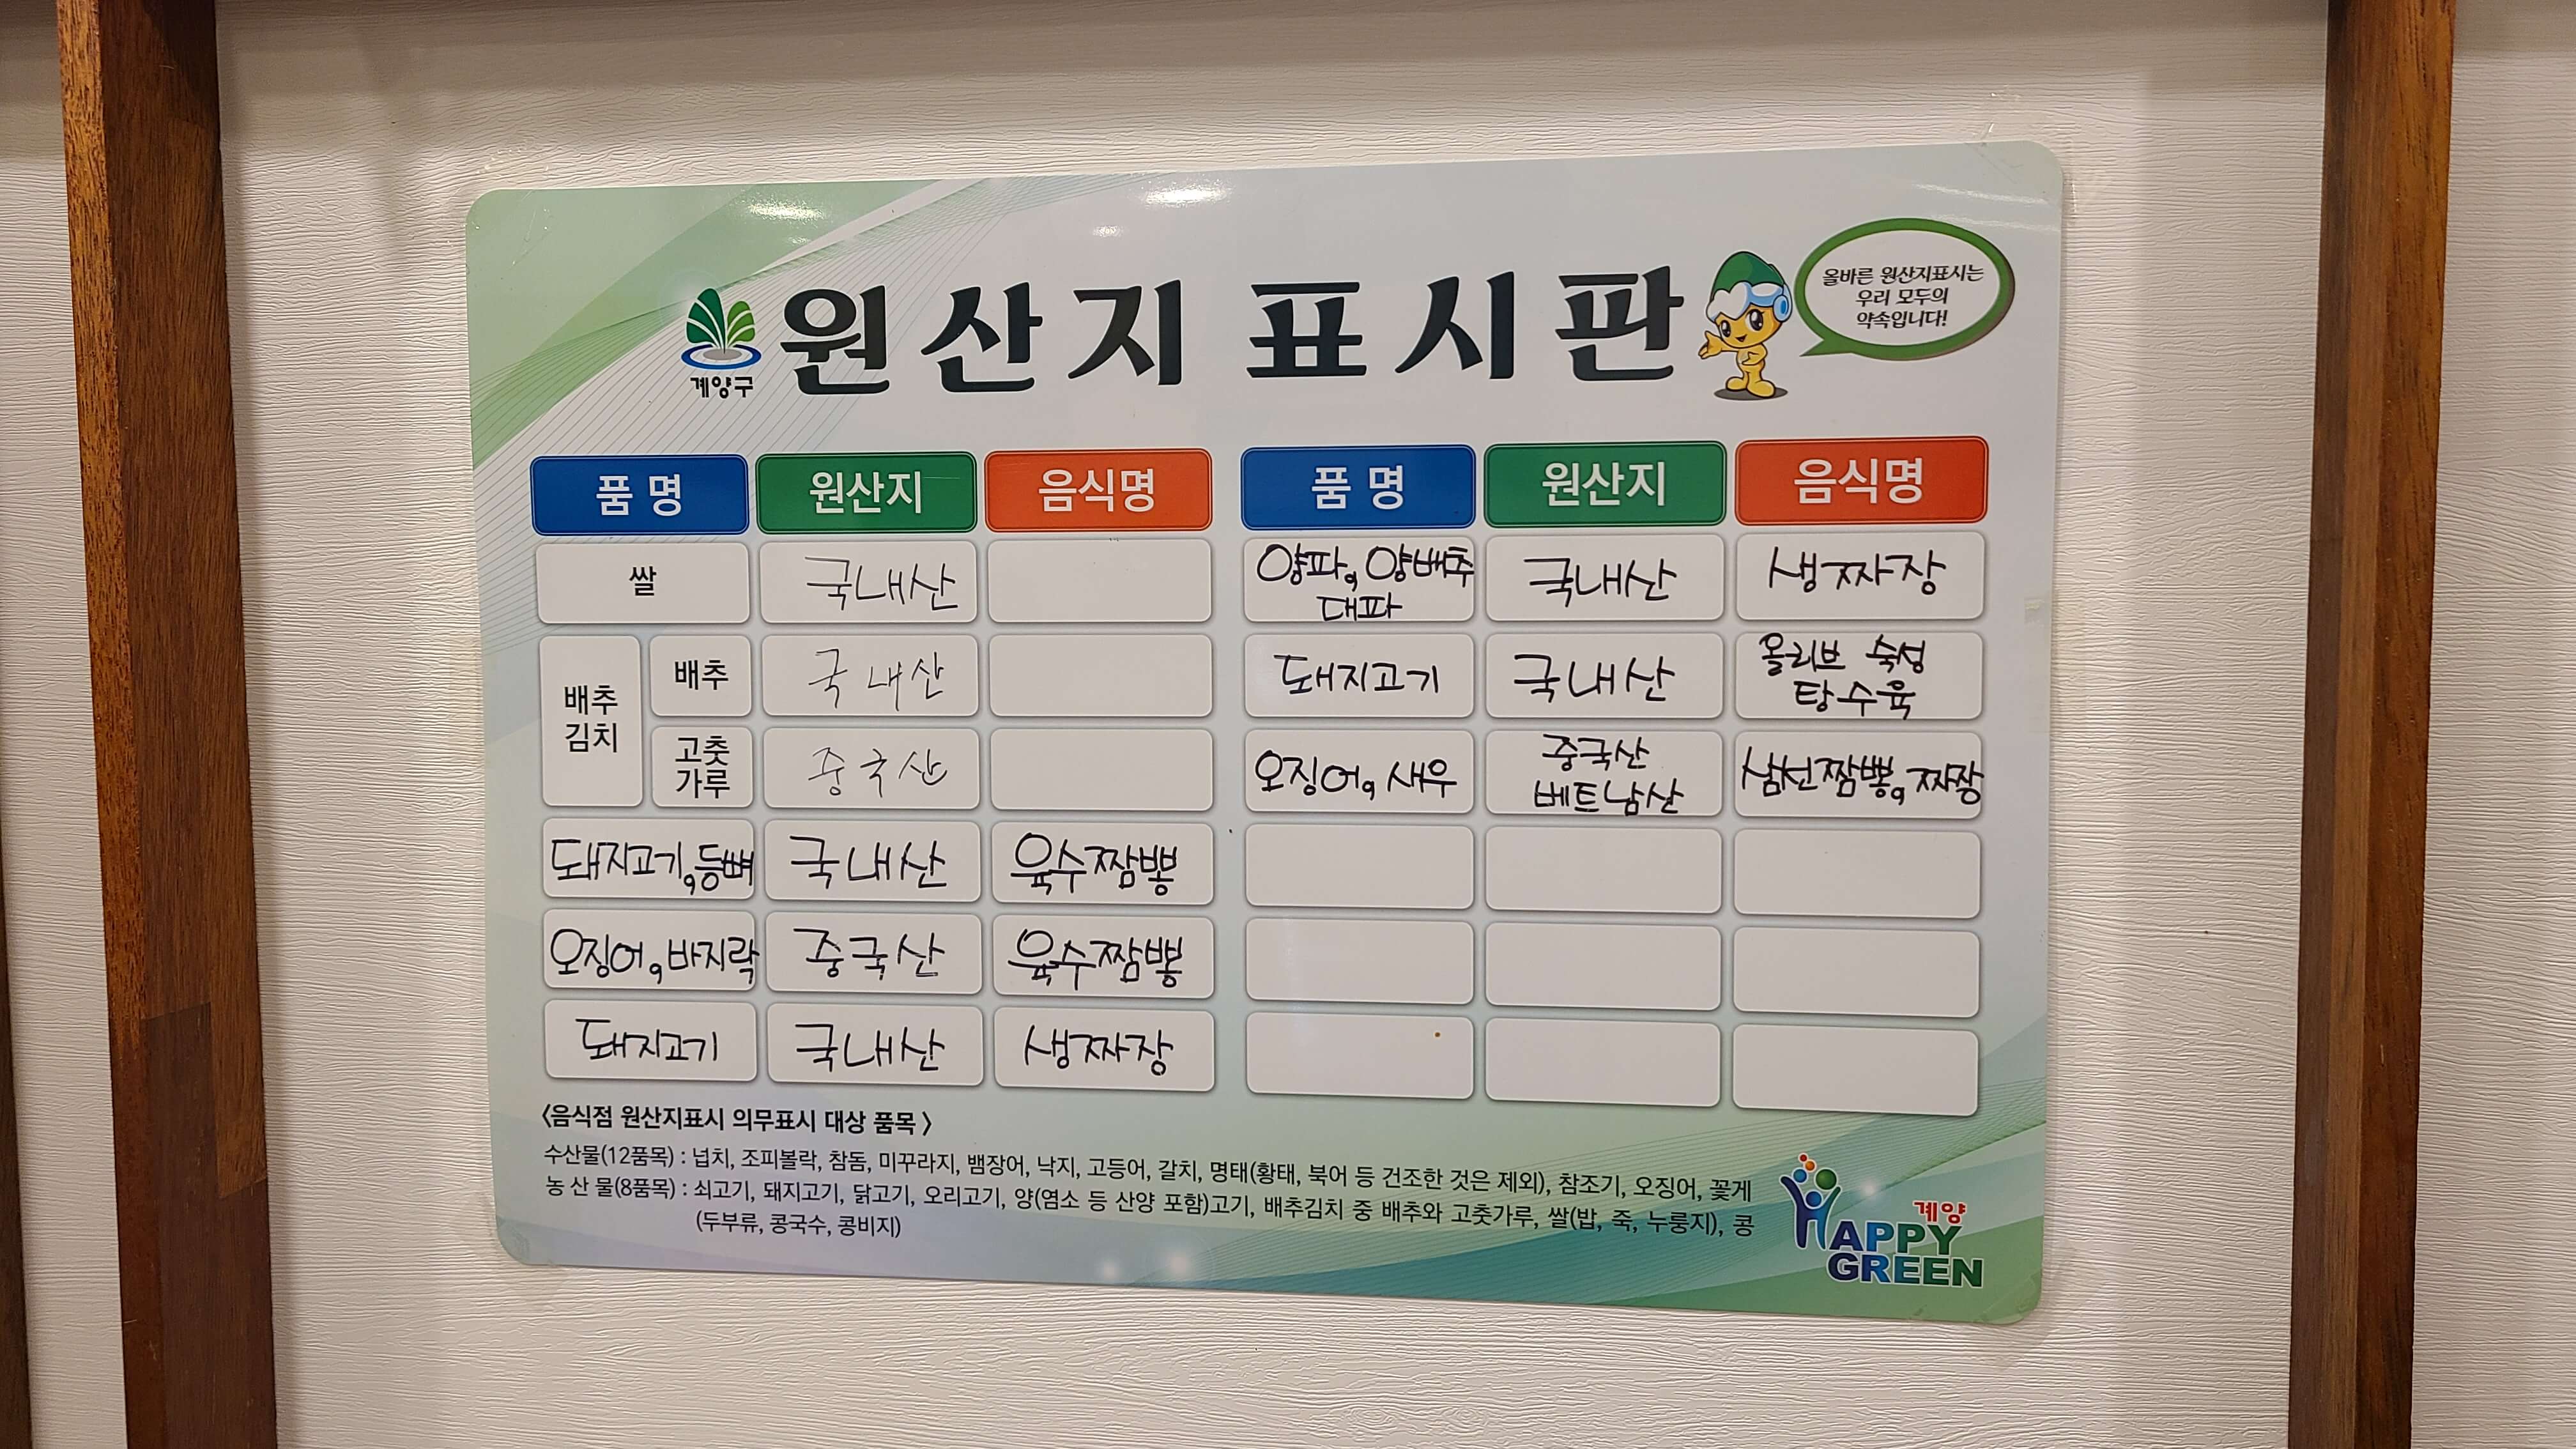 계양구
원산지 표시판
올바른 원산지표시는
우리 모두의
약속입니다!
품 명 원산지 음식명 품 명 원산지 음식명
쌀 국내산
양파, 양배추
대파
국내산 생짜장
배추
김치
배추 국내산
돼지고기 국내산
올리브 숙성
탕수육
고춧
가루
중국산
오징어, 새우
중국산
베트남산
삼선짬뽕, 짜장
돼지고기, 등뼈 국내산 육수짬뽕
오징어, 바지락 중국산 육수짬뽕
돼지고기 국내산 생짜장
<음식점 원산지표시 의무표시 대상 품목>
수산물(12품목) : 넙치, 조피볼락, 참돔, 미꾸라지, 뱀장어, 낙지, 고등어, 갈치, 명태(황태, 북어 등 건조한 것은 제외), 참조기, 오징어, 꽃게
농 산 물(8품목) : 쇠고기, 돼지고기, 닭고기, 오리고기, 양(염소 등 산양 포함)고기, 배추김치 중 배추와 고춧가루, 쌀(밥, 죽, 누룽지), 콩
(두부류, 콩국수, 콩비지)
계양
HAPPY
GREEN